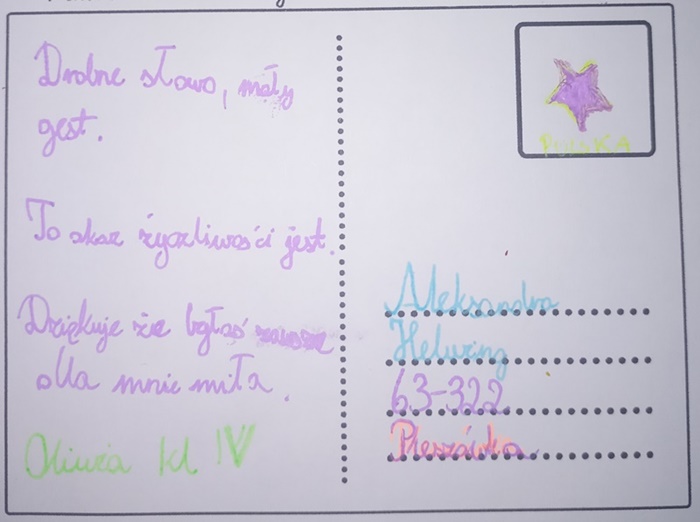 Drobne słowo, mały
gest.
To okaz życzliwości jest.
Dziękuje że byłaś
dla mnie miła.
Oliwia kl IV
POLSKA
Aleksandra
Helwing
63-322
Pleszówka